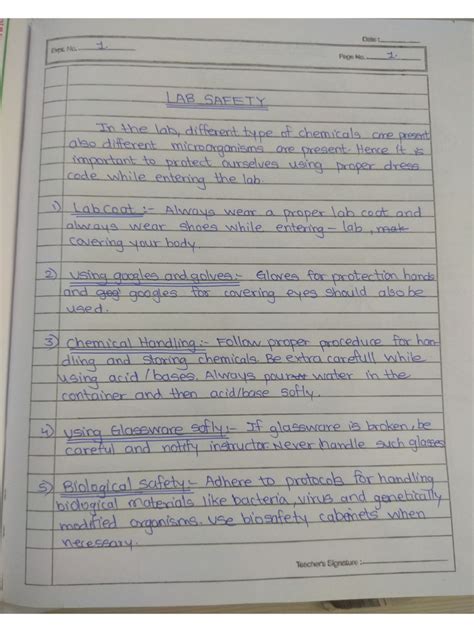 Date :
Expt. No. 1.
Page No. 1.
LAB SAFETY
In the lab, different type of chemicals are present
also different microorganisms are present. Hence It is
important to protect ourselves using proper dress
code while entering the lab.
1) Lab coat :- Always wear a proper lab coat and
always wear shoes while entering - lab, mak
covering your body.
2) Using gongles and golves:- Gloves for protection hands
and gog googles for covering eyes should also be
used.
3) Chemical Handling:- Follow proper procedure for han-
dling and storing chemicals. Be extra carefull while
using acid/bases. Always pour water in the
container and then acid/base softly.
4) Using Glassware softly:- If glassware is broken, be
careful and notify instructor. Never handle such glasses
5) Biological safety:- Adhere to protocols for handling
biological materials like bacteria, virus and genetically
modified organisms. Use biosafety cabinets when
necessary.
Teacher's Signature :